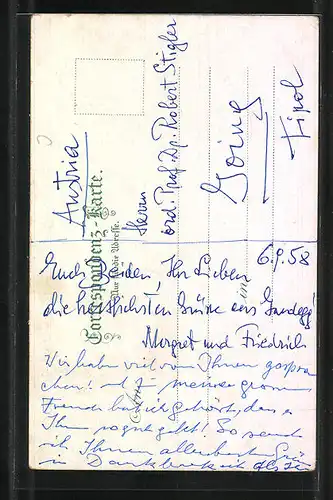 Correspondenz-Karte.
Nur für die Adresse.
Austria
Herrn
ord. Prof. Dr. Robert Stigler
Going
Tirol
6.9.58
Euch Beiden, Ihr Lieben,
die herzlichsten Grüsse aus
Margret und Friedrich
Wir haben viel von Ihnen gespro
chen! und meiner grossen
Freude habe ich gehört, das es
Ihnen so gut geht! So sende
ich Ihnen allerbeste Grüsse
in Dankbarkeit als